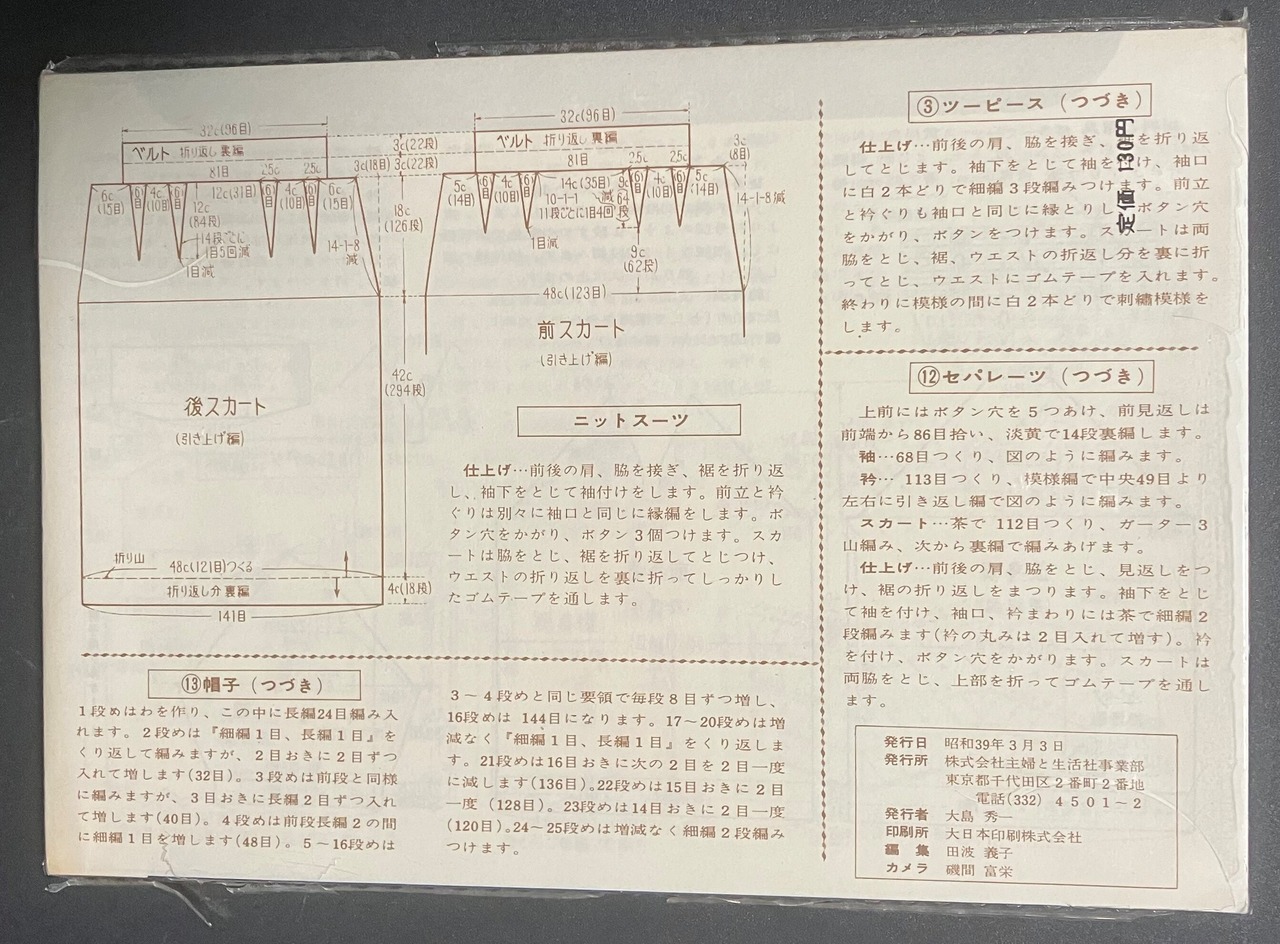 32c(96目)
ベルト 折り返し裏編
81目
3c(22段)
3c(18目)
6c
(15目)
6目
4c
(10目)
6目
12c(31目)
2.5c
6目
4c
(10目)
2.5c
6目
6c
(15目)
12c
(84段)
14段ごとに
1目5回減
1目減
14-1-8
減
18c
(126段)
後スカート
(引き上げ編)
42c
(294段)
折り山
48c(121目)つくる
折り返し分 裏編
4c(18段)
141目
32c(96目)
ベルト 折り返し裏編
3c(22段)
81目
3c
(8目)
5c
(14目)
6目
4c
(10目)
6目
14c(35目)
10-1-1 減
11段ごとに1目4回
1目減
2.5c
9c
64段
6目
4c
(10目)
2.5c
6目
5c
(14目)
14-1-8減
9c
(62段)
48c(123目)
前スカート
(引き上げ編)
ニットスーツ
仕上げ…前後の肩、脇を接ぎ、裾を折り返
し、袖下をとじて袖付けをします。前立と衿
ぐりは別々に袖口と同じに縁編をします。ボ
タン穴をかがり、ボタン3個つけます。スカ
ートは脇をとじ、裾を折り返してとじつけ、
ウエストの折り返しを裏に折ってしっかりし
たゴムテープを通します。
⑬帽子(つづき)
1段めはわを作り、この中に長編24目編み入
れます。2段めは『細編1目、長編1目』を
くり返して編みますが、2目おきに2目ずつ
入れて増します(32目)。3段めは前段と同様
に編みますが、3目おきに長編2目ずつ入れ
て増します(40目)。4段めは前段長編2の間
に細編1目を増します(48目)。5〜16段めは
3〜4段めと同じ要領で毎段8目ずつ増し、
16段めは 144目になります。17〜20段めは増
減なく『細編1目、長編1目』をくり返しま
す。21段めは16目おきに次の2目を2目一度
に減します(136目)。22段めは15目おきに2目
一度(128目)。23段めは14目おきに2目一度
(120目)。24〜25段めは増減なく細編2段編み
つけます。
③ツーピース(つづき)
仕上げ…前後の肩、脇を接ぎ、を折り返
してとじます。袖下をとじて袖をけ、袖口
に白2本どりで細編3段編みつけます。前立
と衿ぐりも袖口と同じに縁とりし、ボタン穴
をかがり、ボタンをつけます。スカートは両
脇をとじ、裾、ウエストの折返し分を裏に折
ってとじ、ウエストにゴムテープを入れます。
終わりに模様の間に白2本どりで刺繡模様を
します。
定価 130円
⑫セパレーツ(つづき)
上前にはボタン穴を5つあけ、前見返しは
前端から86目拾い、淡黄で14段裏編します。
袖…68目つくり、図のように編みます。
衿… 113目つくり、模様編で中央49目より
左右に引き返し編で図のように編みます。
スカート…茶で 112目つくり、ガーター3
山編み、次から裏編で編みあげます。
仕上げ…前後の肩、脇をとじ、見返しをつ
け、裾の折り返しをまつります。袖下をとじ
て袖を付け、袖口、衿まわりには茶で細編2
段編みます(衿の丸みは2目入れて増す)。衿
を付け、ボタン穴をかがります。スカートは
両脇をとじ、上部を折ってゴムテープを通し
ます。
発行日 昭和39年3月3日
発行所 株式会社主婦と生活社事業部
東京都千代田区2番町2番地
電話(332) 4501〜2
発行者 大島 秀一
印刷所 大日本印刷株式会社
編 集 田波 義子
カメラ 磯間 富栄